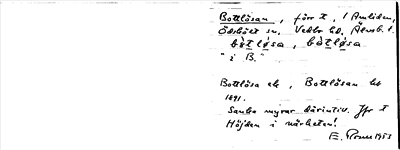 Bottlösan, förr t, i Anliden,
Ödeböret sn, Vedbo hd, Älvsb. l.
bòtlø̀sa, bòtlø̀sa
"i B."
Bottlösa ek, Bottlösan
1891.
Sanka myrar därintill. Jfr t
Höjden i närheten!
E. 1953